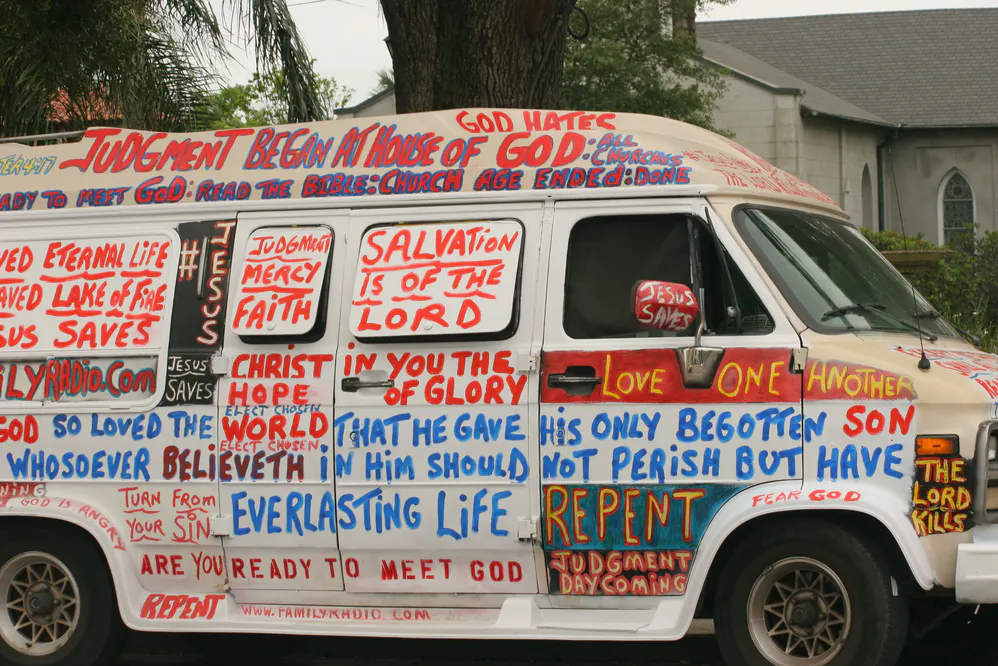 GOD HATES
JUDGMENT BEGAN AT HOUSE OF GOD: ALL CHURCHES
4:17
ADY TO MEET GOD: READ THE BIBLE: CHURCH AGE ENDED: DONE
VED ETERNAL LIFE
AVED LAKE OF FIRE
SUS SAVES
#1 JESUS
JESUS SAVES
JUDGMENT
MERCY
FAITH
SALVATION
IS OF THE
LORD
JESUS
SAVES
ILYRADIO.COM
CHRIST IN YOU THE
HOPE OF GLORY
LOVE ONE ANOTHER
ELECT CHOSEN
GOD SO LOVED THE WORLD THAT HE GAVE HIS ONLY BEGOTTEN SON
ELECT CHOSEN
WHOSOEVER BELIEVETH IN HIM SHOULD NOT PERISH BUT HAVE
EVERLASTING LIFE
NING
GOD IS ANGRY
TURN FROM
YOUR SIN
REPENT
JUDGMENT
DAY COMING
FEAR GOD
THE
LORD
KILLS
ARE YOU READY TO MEET GOD
REPENT
WWW.FAMILYRADIO.COM